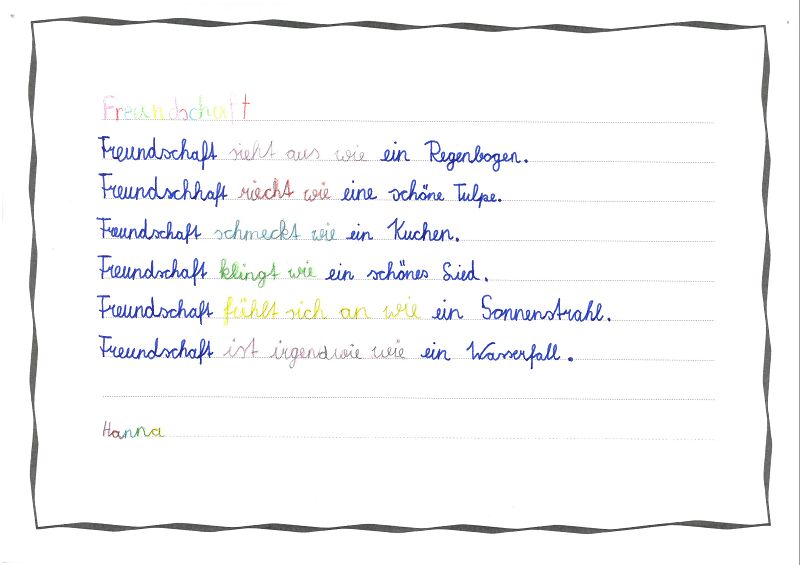 Freundschaft
Freundschaft sieht aus wie ein Regenbogen.
Freundschhaft riecht wie eine schöne Tulpe.
Freundschaft schmeckt wie ein Kuchen.
Freundschaft klingt wie ein schönes Lied.
Freundschaft fühlt sich an wie ein Sonnenstrahl.
Freundschaft ist irgendwie wie ein Wasserfall.
Hanna